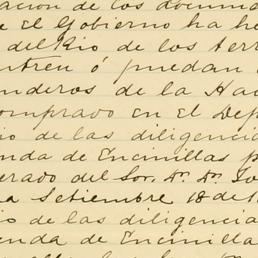 ación de los docum
e El Gobierno ha he
del Rio de los terr
ntren ó puedan
nderos de la Ha
omprado en el Dep
io de las diligencia
nda de Encinillas p
erado del Sor. Dr. Dn. Jo
a Setiembre 18 de 1
io de las diligencia
enda de Encinilla